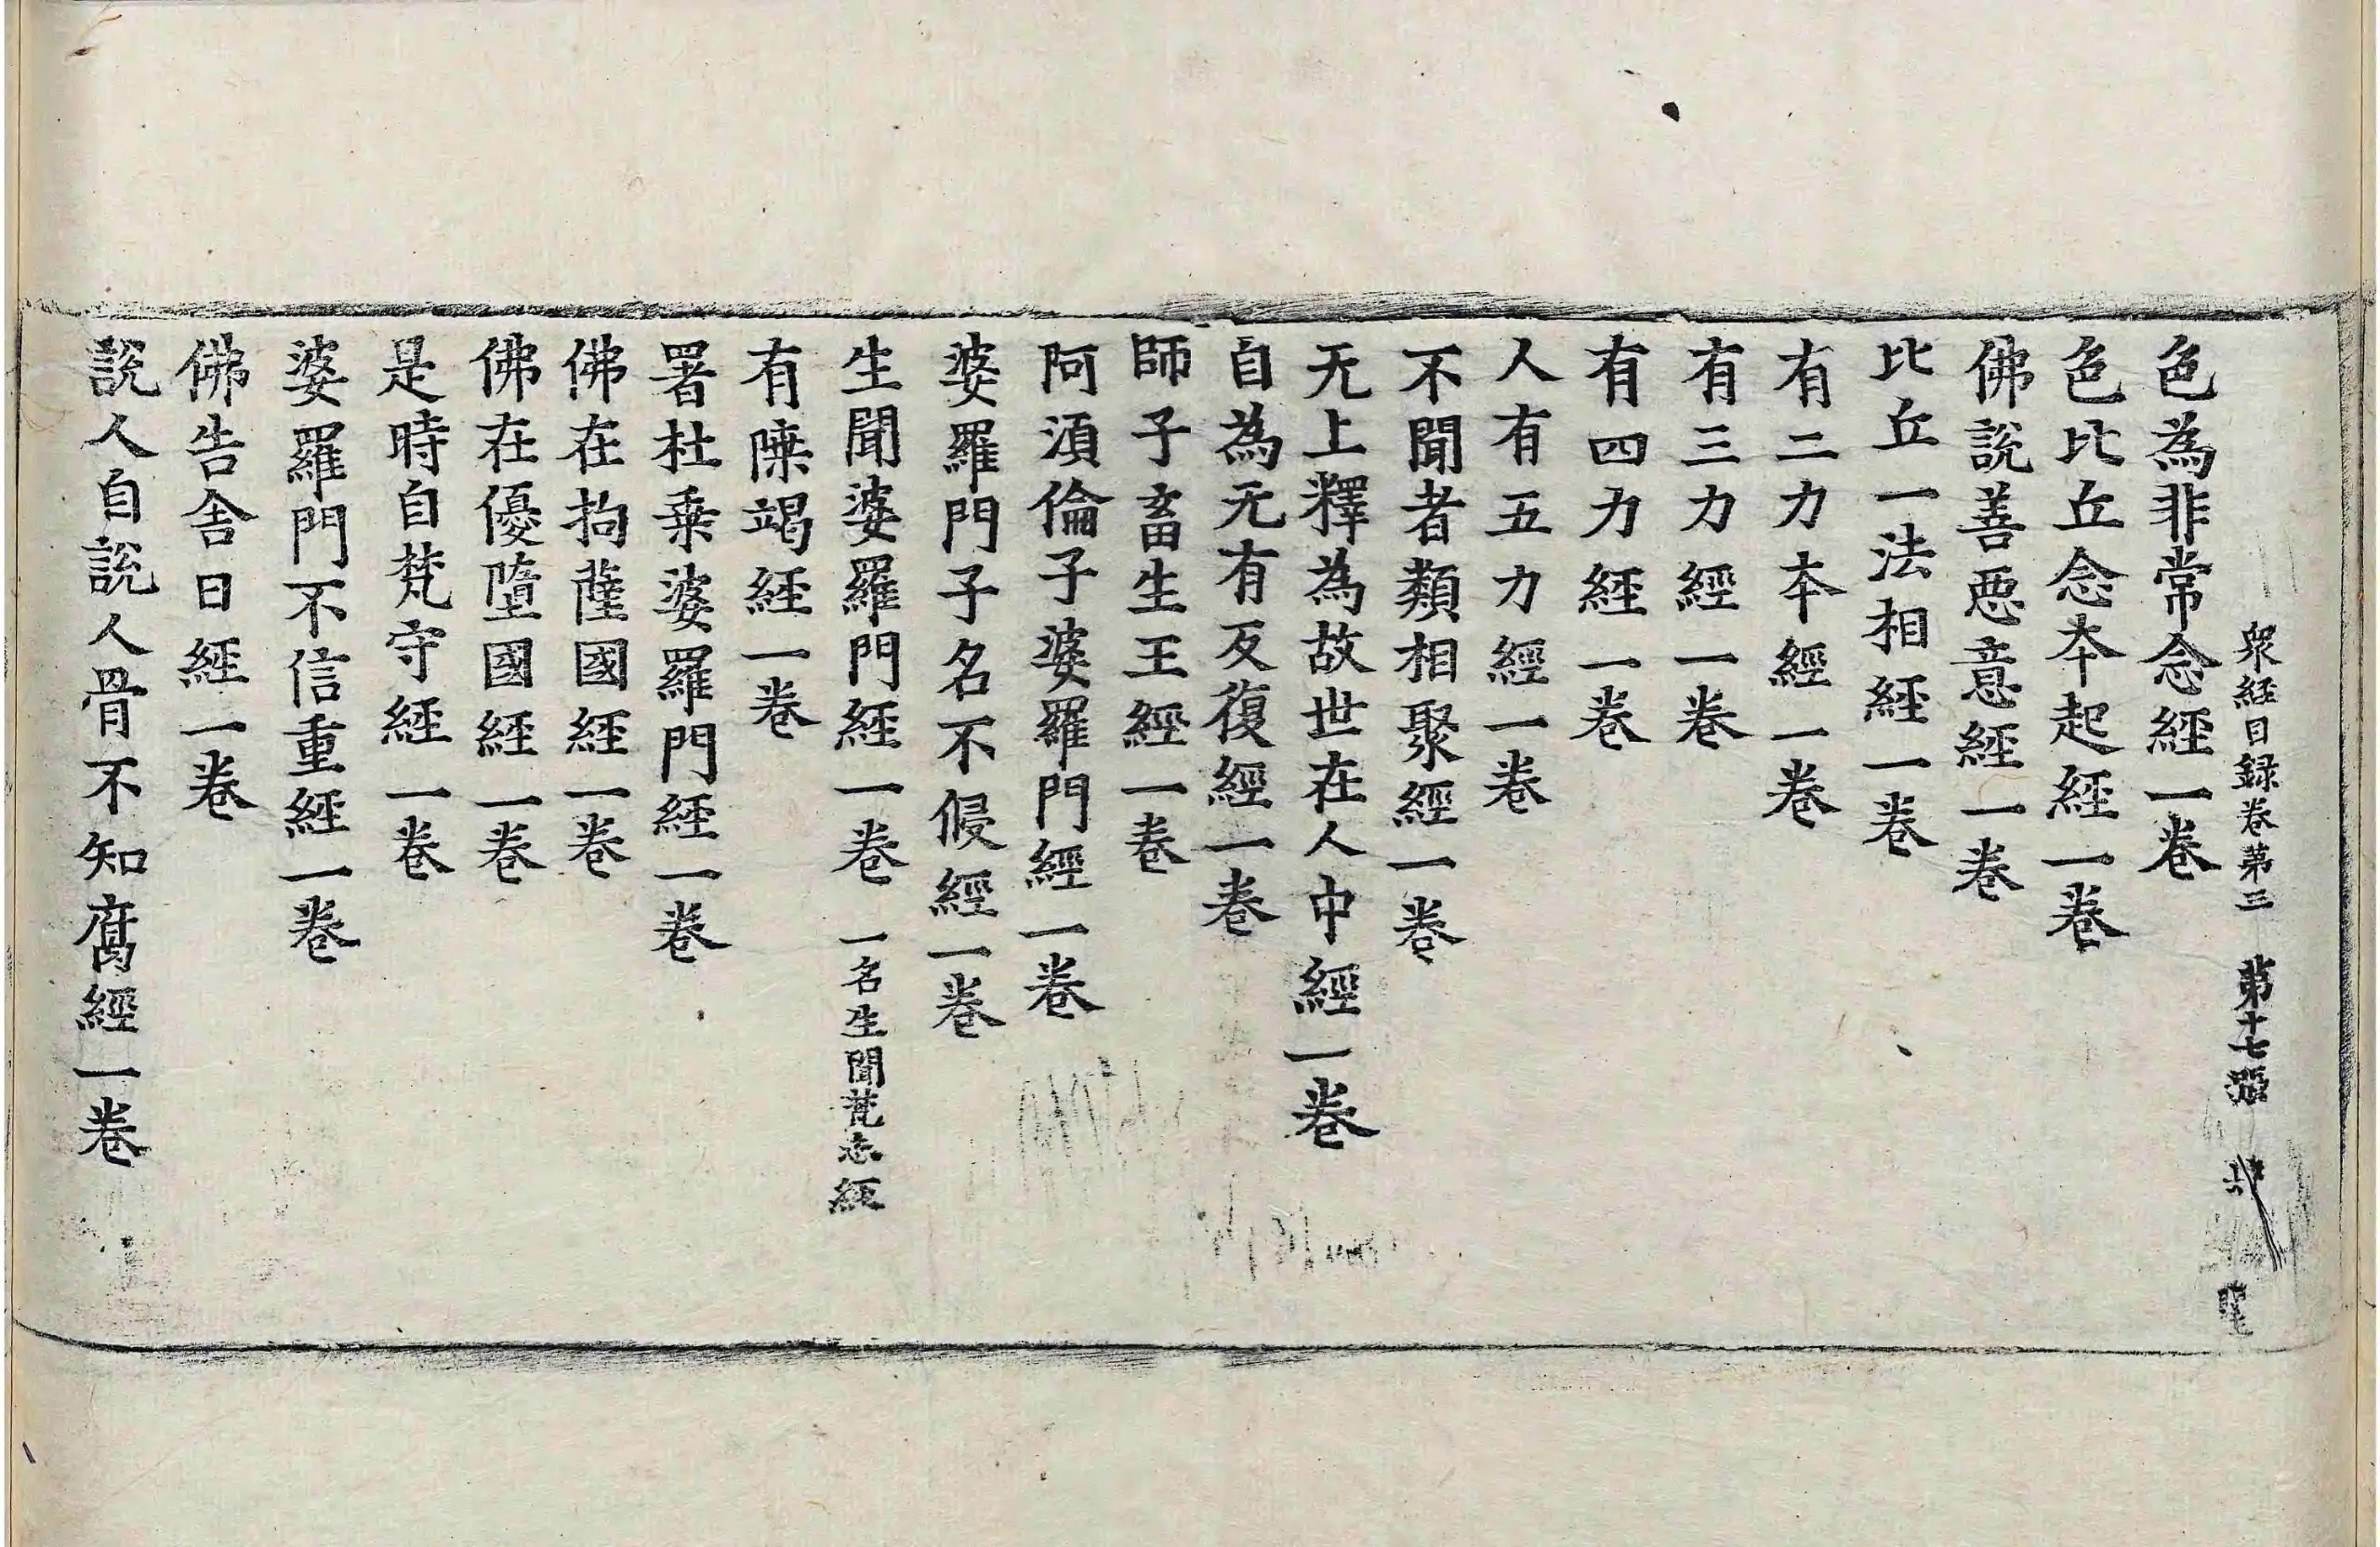 衆経目録卷第三　第十七張
色為非常念經一卷
色比丘念本起經一卷
佛說善惡意經一卷
比丘一法相經一卷
有二力本經一卷
有三力經一卷
有四力經一卷
人有五力經一卷
不聞者類相聚經一卷
无上釋為故世在人中經一卷
自為无有反復經一卷
師子畜生王經一卷
阿湏倫子婆羅門經一卷
婆羅門子名不侵經一卷
生聞婆羅門經一卷　一名生聞梵志經
有𨻶竭經一卷
署杜乗婆羅門經一卷
佛在拘薩國經一卷
佛在優墮國經一卷
是時自梵守經一卷
婆羅門不信重經一卷
佛告舍日經一卷
說人自說人骨不知腐經一卷